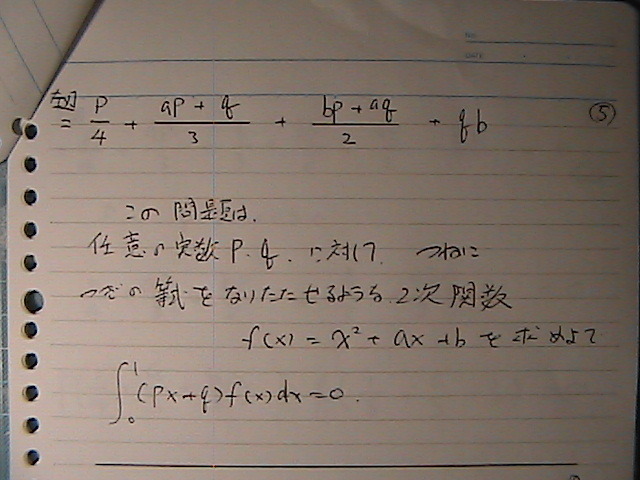 No.
左辺 = p/4 + (ap + q)/3 + (bp + aq)/2 + qb ⑤
この問題は、
任意の実数 P. q. に対して つねに
つぎの等式をなりたたせるような 2次関数
f(x) = x² + ax + b を求めよて
∫₀¹ (px+q)f(x)dx=0.